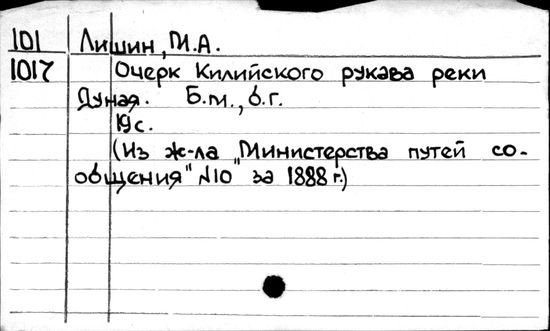 101 Лишин, М.А.
1017 Очерк Килийского рукава реки
Дуная. Б.м., б.г.
19с.
(Из ж-ла "Министерства путей со-
общения" №10 за 1888 г.)